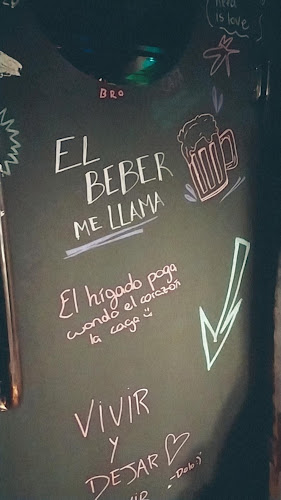 is love
BRO
EL
BEBER
ME LLAMA
El hígado paga
cuando el corazón
la caga
VIVIR
Y
DEJAR
-Dolo:)